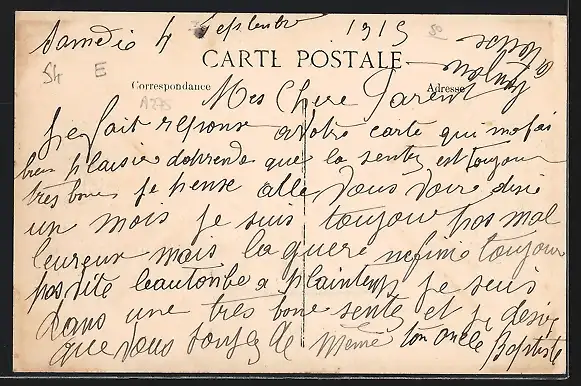 Samedie 4 Septembre 1915
CARTE POSTALE
Correspondance
Adresse
54 E
Mes Chere Parent
Je fait reponse a votre carte qui mofai
bien plaisir dohrende que la sentez est toujour
tres bone je pense allé vous voire disi
un mois je suis toujour pas mal
leureux mais la guere nefini toujour
pas vite leautonbe a plaintemps je suis
dans une tres bone sente et je desir
que vous soufez de même ton oncle Baptiste